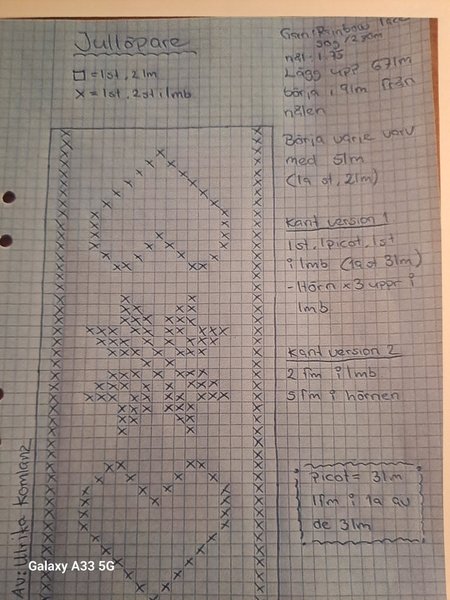 Jullöpare
□ = 1st, 2lm
x = 1st, 2st i lmb
Garn: Rainbow lace
50g / 25
nål: 1.75
Lägg upp 67lm
börja i 9lm från
nålen
Börja varje varv
med 5lm
(1a st, 2lm)
Kant version 1
1st, 1picot, 1st
i lmb (1a st 3lm)
-Hörn x3 uppr i
lmb
Kant version 2
2 fm i lmb
5 fm i hörnen
Picot = 3lm
1fm i 1a av
de 3lm
Av: Ulrika Komlanz
Galaxy A33 5G